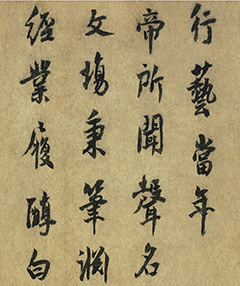 行藝當年
帝所聞聲名
文場秉筆淵
經業履醇白